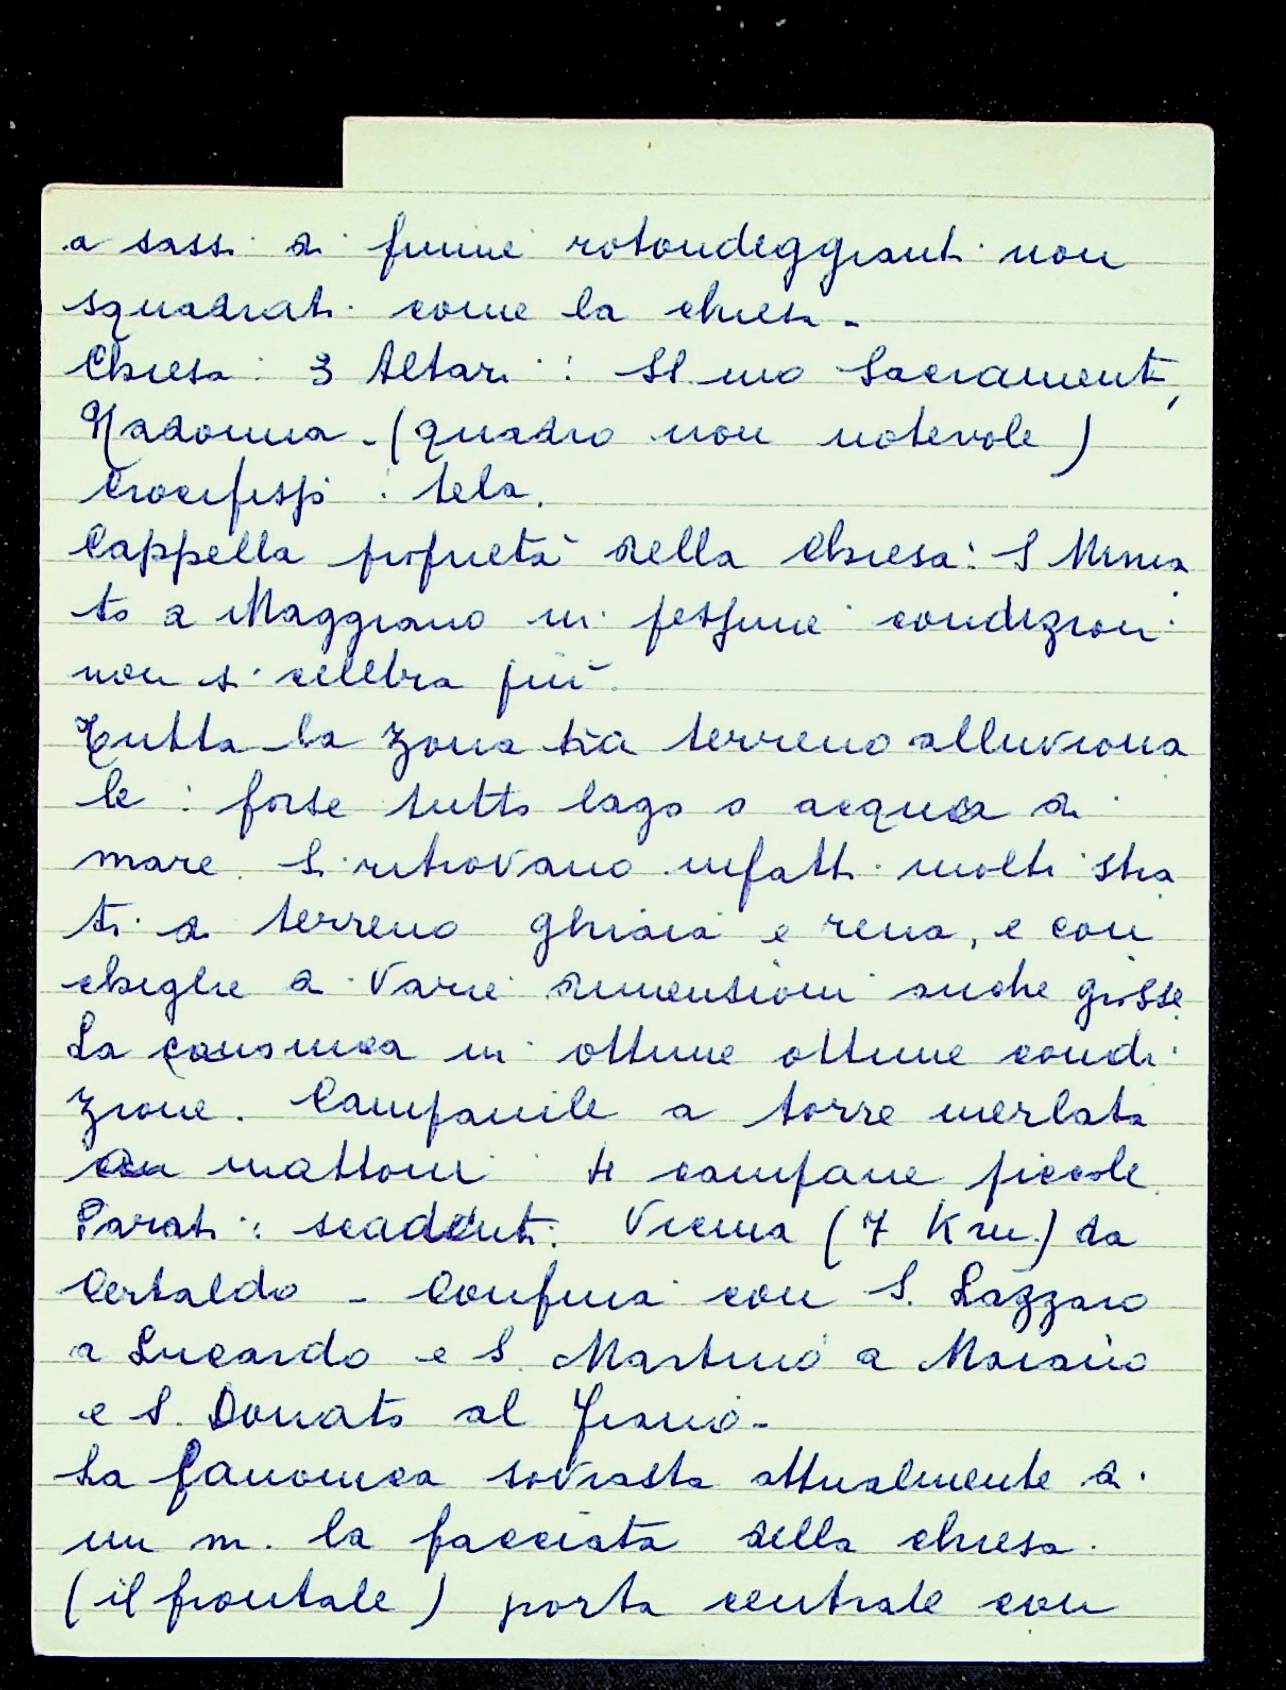 a sassi di fiume rotondeggianti non
squadrati come la chiesa -
Chiesa : 3 Altari : SS mo Sacramento,
Madonna - (quadro non notevole)
Crocifisso : tela.
Cappella proprietà della Chiesa: S Minia
to a Maggiano in pessime condizioni
non si celebra più.
Tutta la zona ha terreno alluviona
le : forse tutto lago o acqua di
mare. Si ritrovano infatti molti stra
ti di terreno ghiaia e rena, e con
chiglie di varie dimensioni anche grosse.
La canonica in ottime ottime condi
zione. Campanile a torre merlata
in mattoni 4 campane piccole.
Parati : scadenti. Vicina (7 Km.) da
Certaldo - Confina con S. Lazzaro
a Lucardo e S. Martino a Maiano
e S. Donato al Piano -
La canonica sovrasta attualmente di
un m. la facciata della chiesa.
(il frontale) porta centrale con